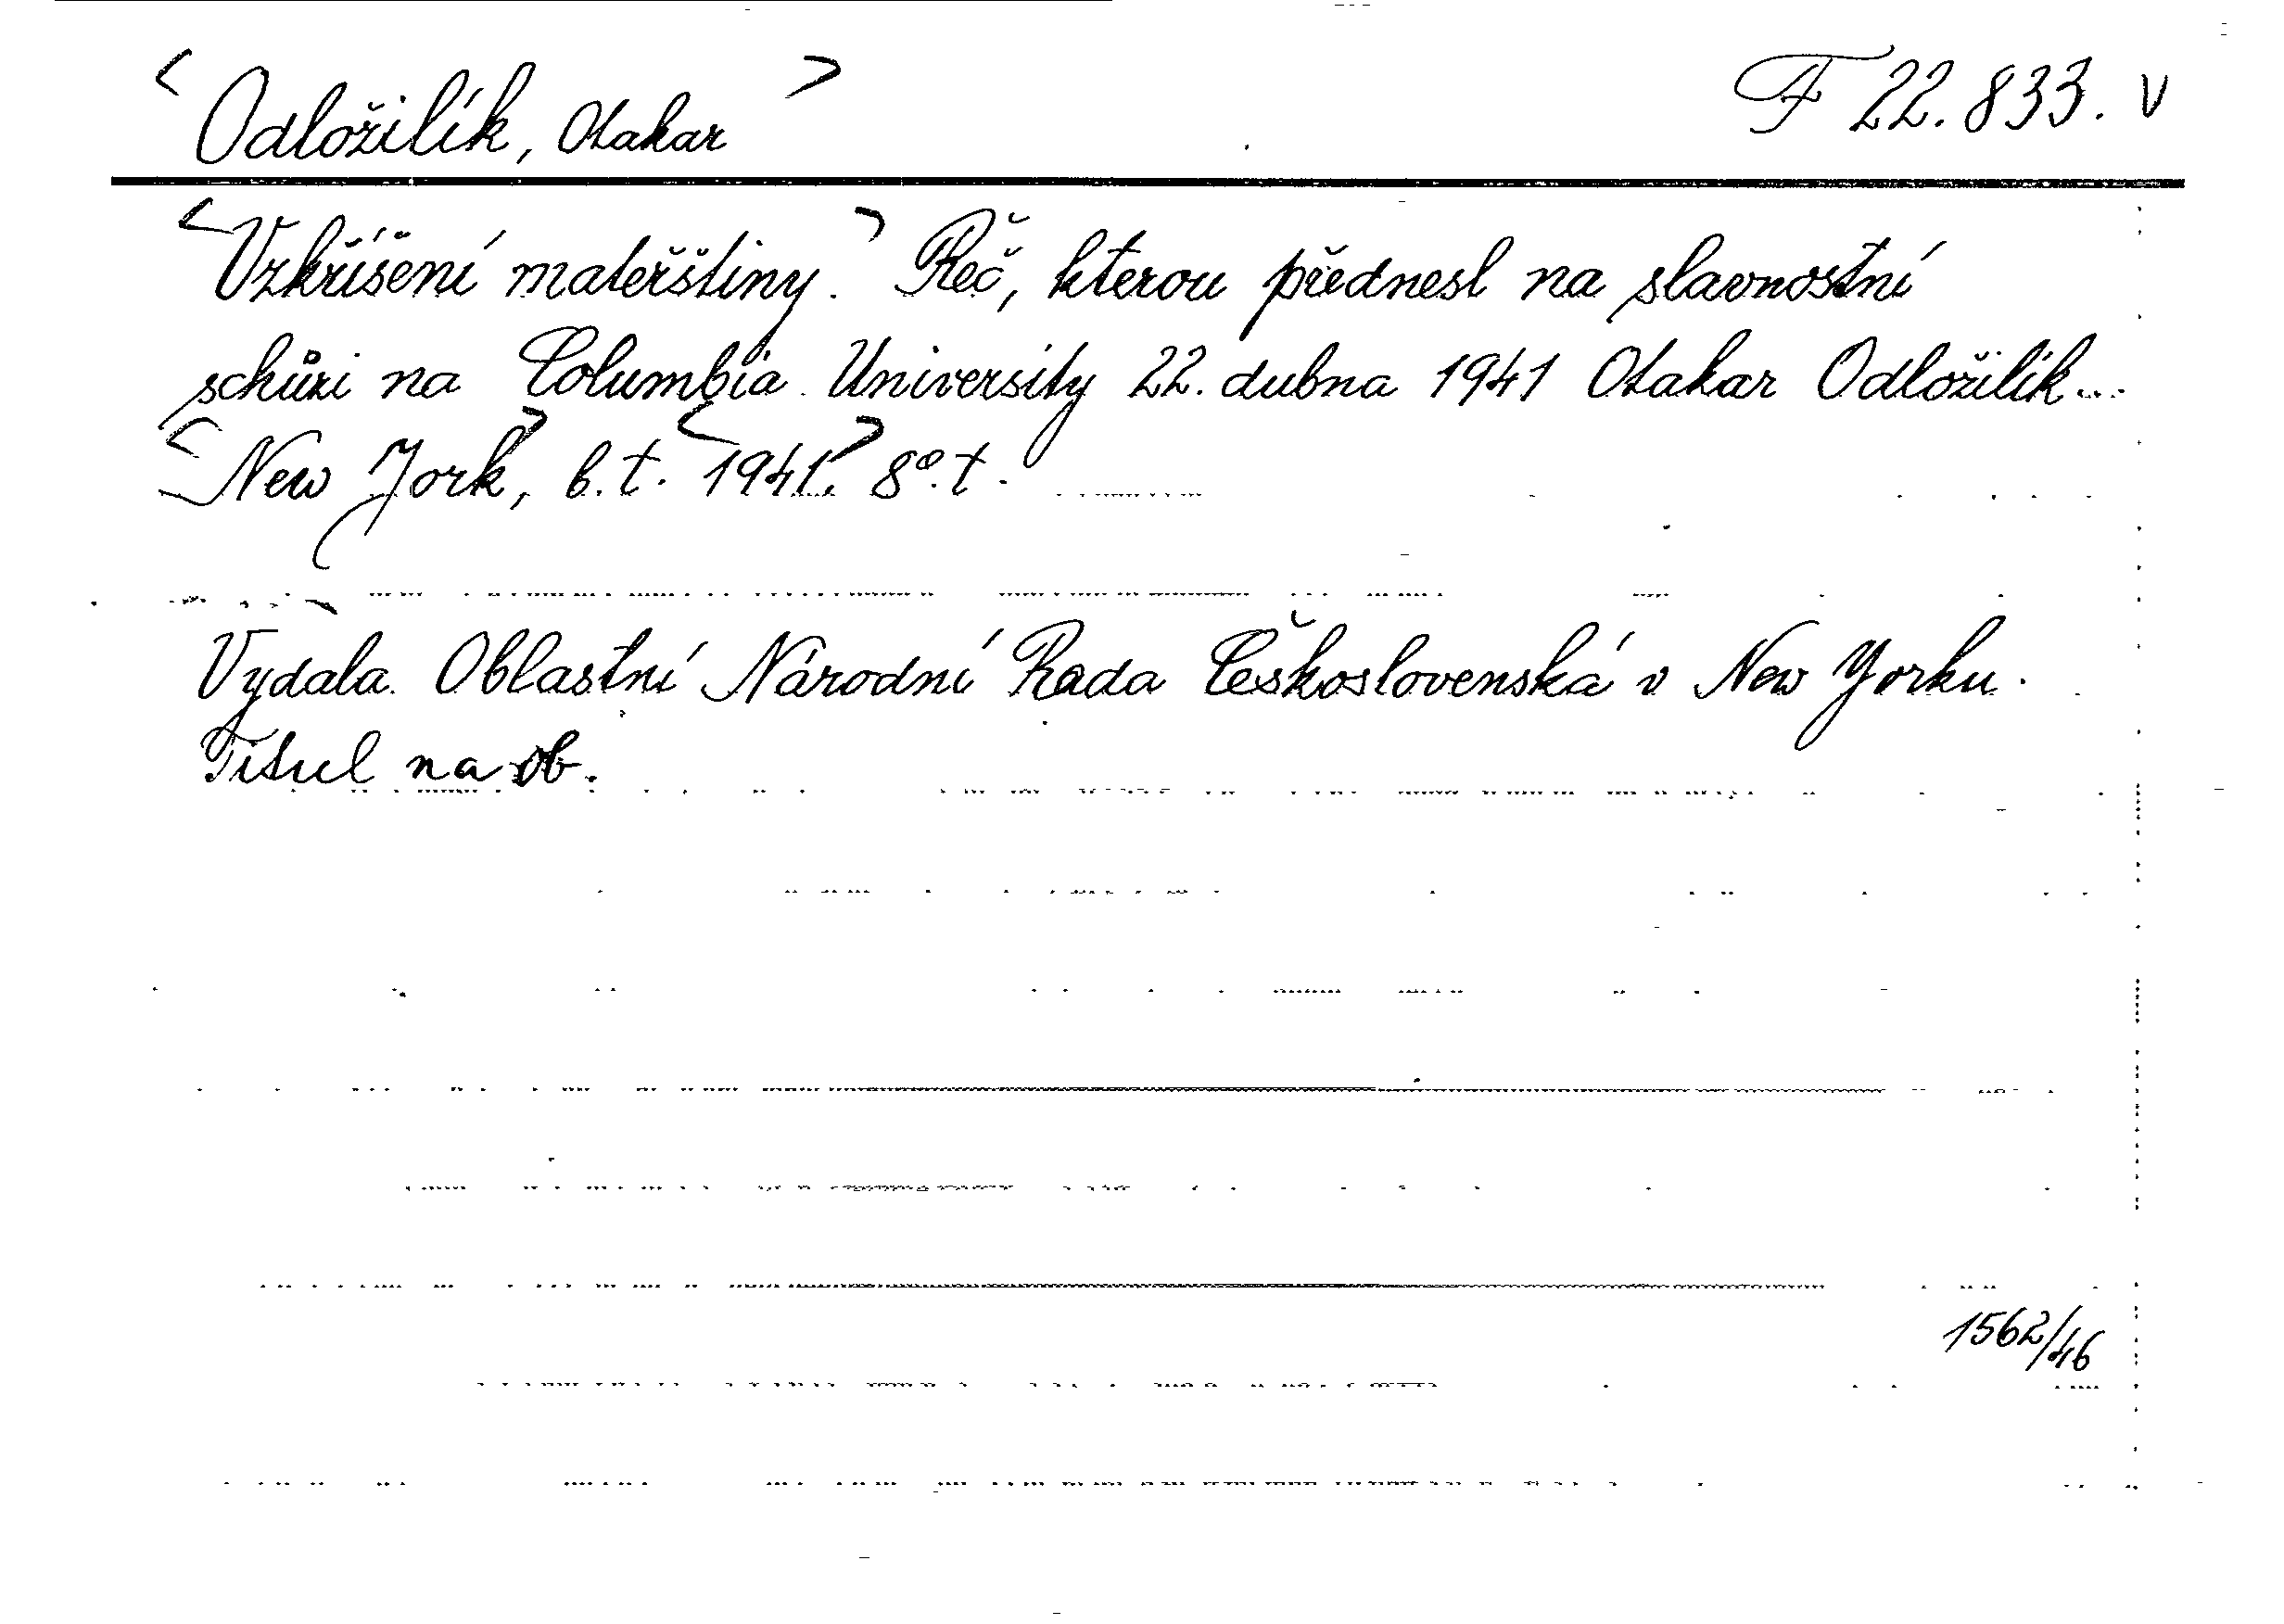 <Odložilík, Otakar> F 22.833. V
<Vzkříšení mateřštiny.> Řeč, kterou přednesl na slavnostní
schůzi na Columbia University 22. dubna 1941 Otakar Odložilík...
<New York,> b. t. <1941.> 8°. t.
Vydala Oblastní Národní Rada Československá v New Yorku.
Titul na ob.
1562/46